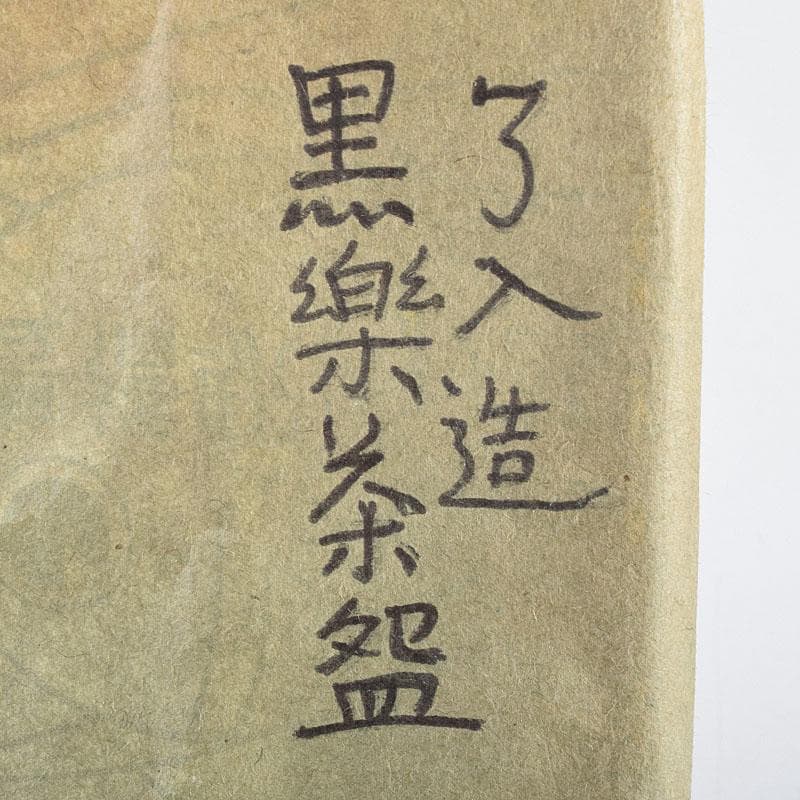 了入造
黒樂茶盌